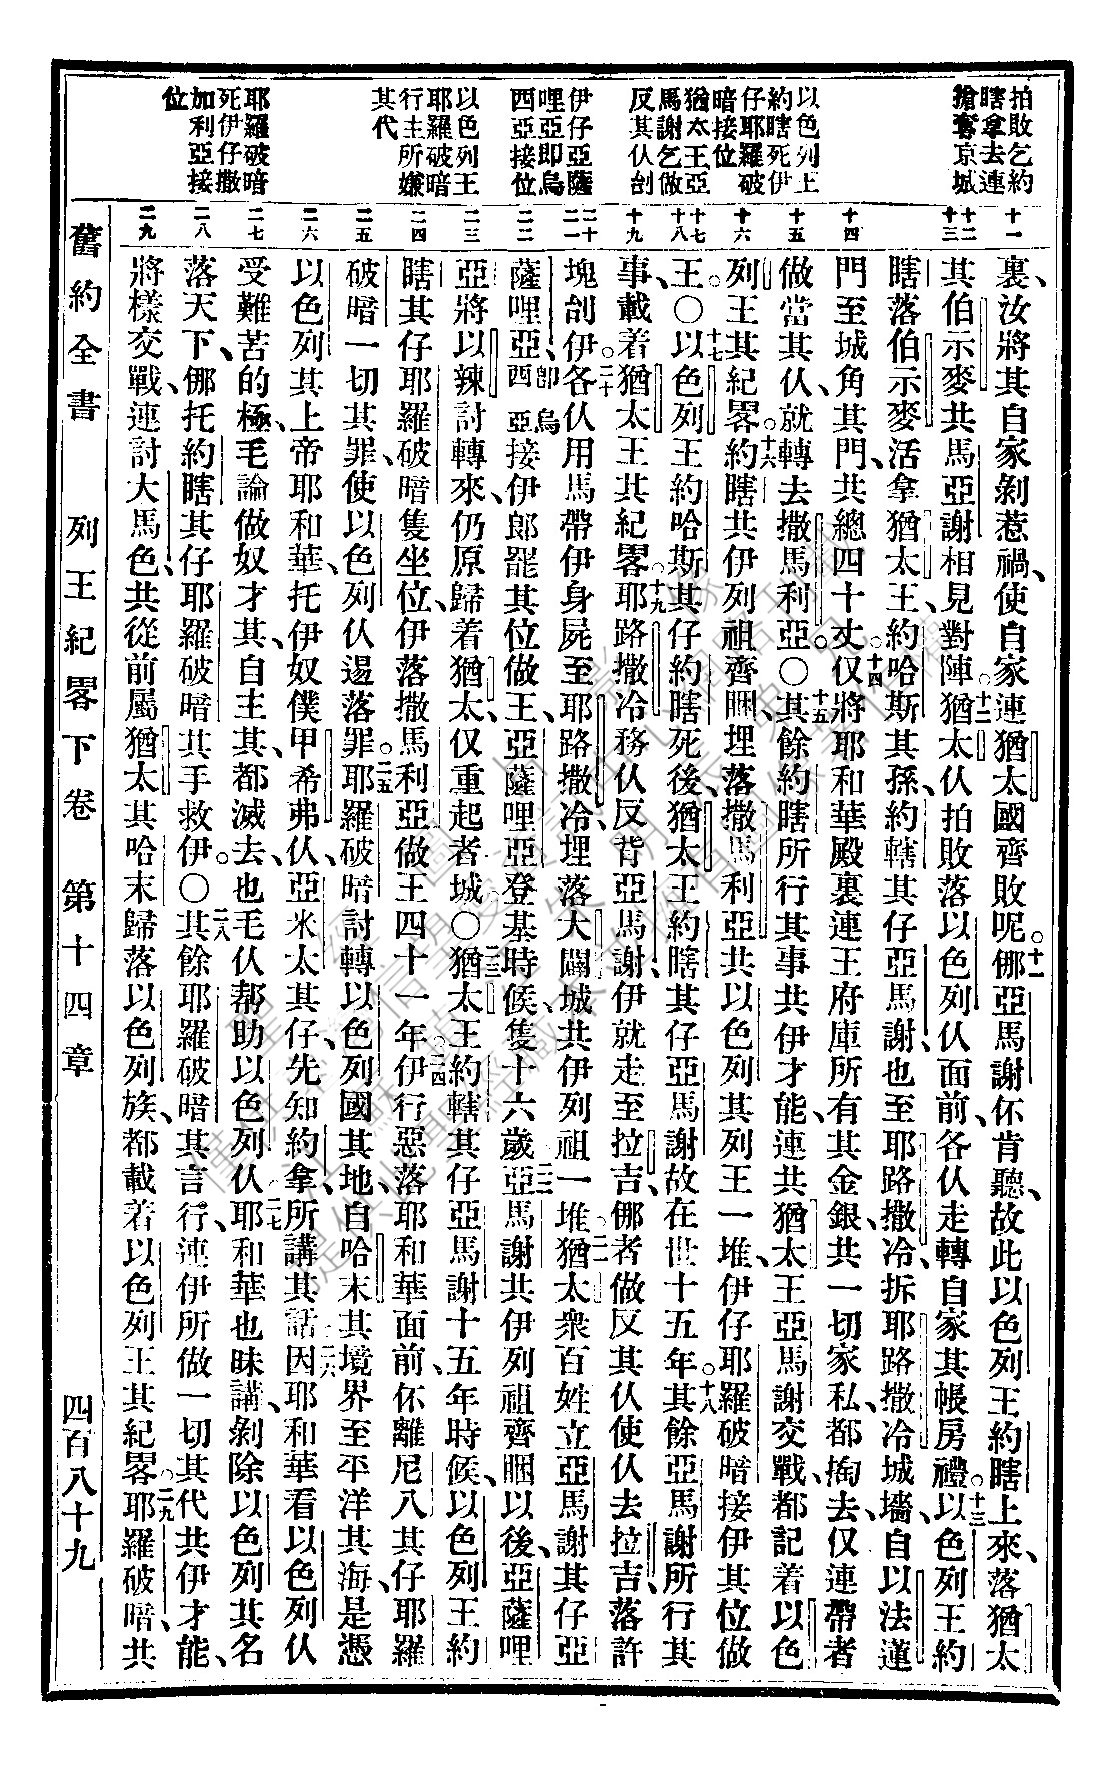 拍敗乞約
瞎拿去連
搶奪京城
以色列王
約瞎死伊
仔耶羅破
暗接位
猶太王亞
馬謝乞做
反其仈刣
伊仔亞薩
哩亞卽烏
西亞接位
以色列王
耶羅破暗
行主所嫌
其代
耶羅破暗
死伊仔撒
加利亞接
位
十一
十二
十三
十四
十五
十六
十七
十八
十九
二十
二一
二二
二三
二四
二五
二六
二七
二八
二九
裏、汝將其自家剝惹禍、使自家連猶太國齊敗呢。十一倻亞馬謝伓肯聽、故此以色列王約瞎上來、落猶太
其伯示麥共馬亞謝相見對陣。十二猶太仈拍敗落以色列仈面前、各仈走轉自家其帳房禮。十三以色列王約
瞎落伯示麥、活拿猶太王、約哈斯其孫、約轄其仔亞馬謝、也至耶路撒冷、拆耶路撒冷城墻、自以法蓮
門至城角其門、共總四十丈。十四仅將耶和華殿裏連王府庫所有其金銀、共一切家私、都掏去、仅連帶者
做當其仈、就轉去撒馬利亞。○十五其餘約瞎所行其事共伊才能、連共猶太王亞馬謝交戰、都記着以色
列王其紀畧。十六約瞎共伊列祖齊睏、埋落撒馬利亞、共以色列其列王一堆、伊仔耶羅破暗接伊其位做
王。○十七以色列王約哈斯其仔約瞎死後、猶太王約瞎其仔亞馬謝故在世十五年。十八其餘亞馬謝所行其
事、載着猶太王其紀畧。十九耶路撒冷務仈反背亞馬謝、伊就走至拉吉、倻者做反其仈使仈去拉吉、落許
塊刣伊。二十各仈用馬帶伊身屍至耶路撒冷、埋落大闢城、共伊列祖一堆。二一猶太衆百姓立亞馬謝其仔亞
薩哩亞、卽烏西亞接伊郎罷其位做王、亞薩哩亞登基時候隻十六歲。二二亞馬謝共伊列祖齊睏以後、亞薩哩
亞將以辣討轉來、仍原歸着猶太、仅重起者城。○二三猶太王約轄其仔亞馬謝十五年時候、以色列王約
瞎其仔耶羅破暗隻坐位、伊落撒馬利亞做王四十一年。二四伊行惡落耶和華面前、伓離尼八其仔耶羅
破暗一切其罪、使以色列仈逿落罪。二五耶羅破暗討轉以色列國其地、自哈末其境界至平洋其海、是憑
以色列其上帝耶和華、托伊奴僕甲希弗仈、亞米太其仔先知約拿所講其話。二六因耶和華看以色列仈
受難苦的極、毛論做奴才其、自主其、都滅去、也毛仈帮助以色列仈。二七耶和華也昧講、剝除以色列其名
落天下、倻托約瞎其仔耶羅破暗其手救伊。○二八其餘耶羅破暗其言行、連伊所做一切其代共伊才能、
將樣交戰、連討大馬色、共從前屬猶太其哈末歸落以色列族、都載着以色列王其紀畧。二九耶羅破暗、共
舊約全書　列王紀畧下卷　第十四章　四百八十九